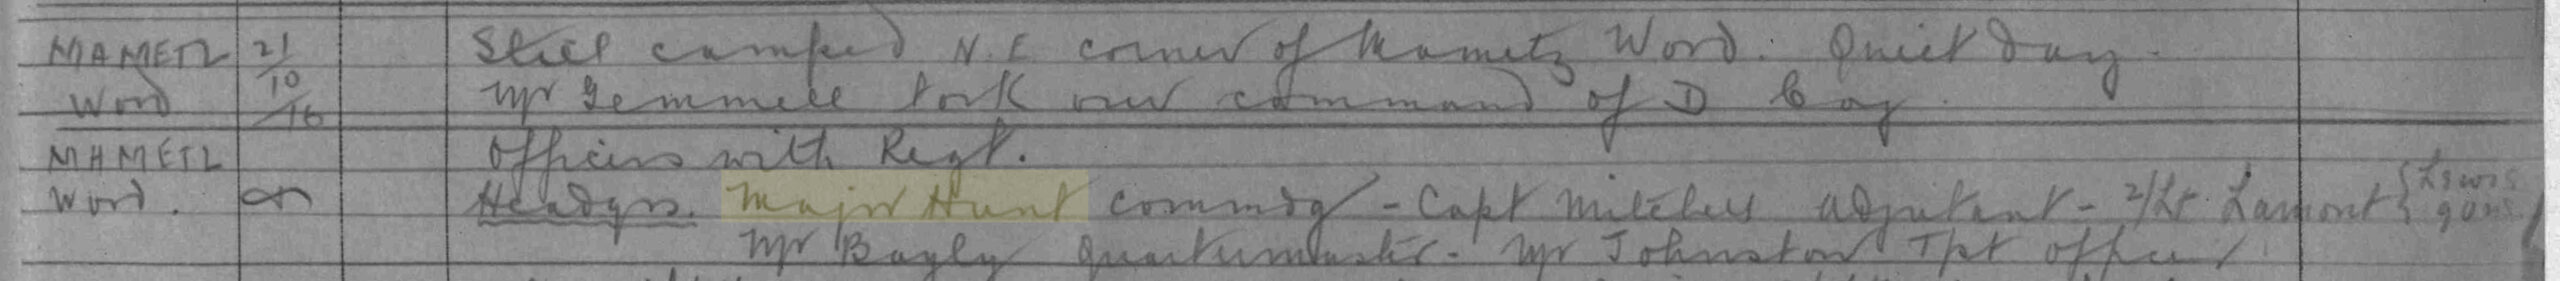 MAMETZ 21/10/16 Still camped N.E corner of Mametz Wood. Quiet day.
Wood Mr Gemmell took over command of D Coy.
MAMETZ Officers with Regt.
Wood. Headqrs. Major Hunt commdg - Capt Mitchell adjutant - 2/Lt. Lamont { Lewis guns
Mr Bayly Quartermaster - Mr Johnston Tpt officer